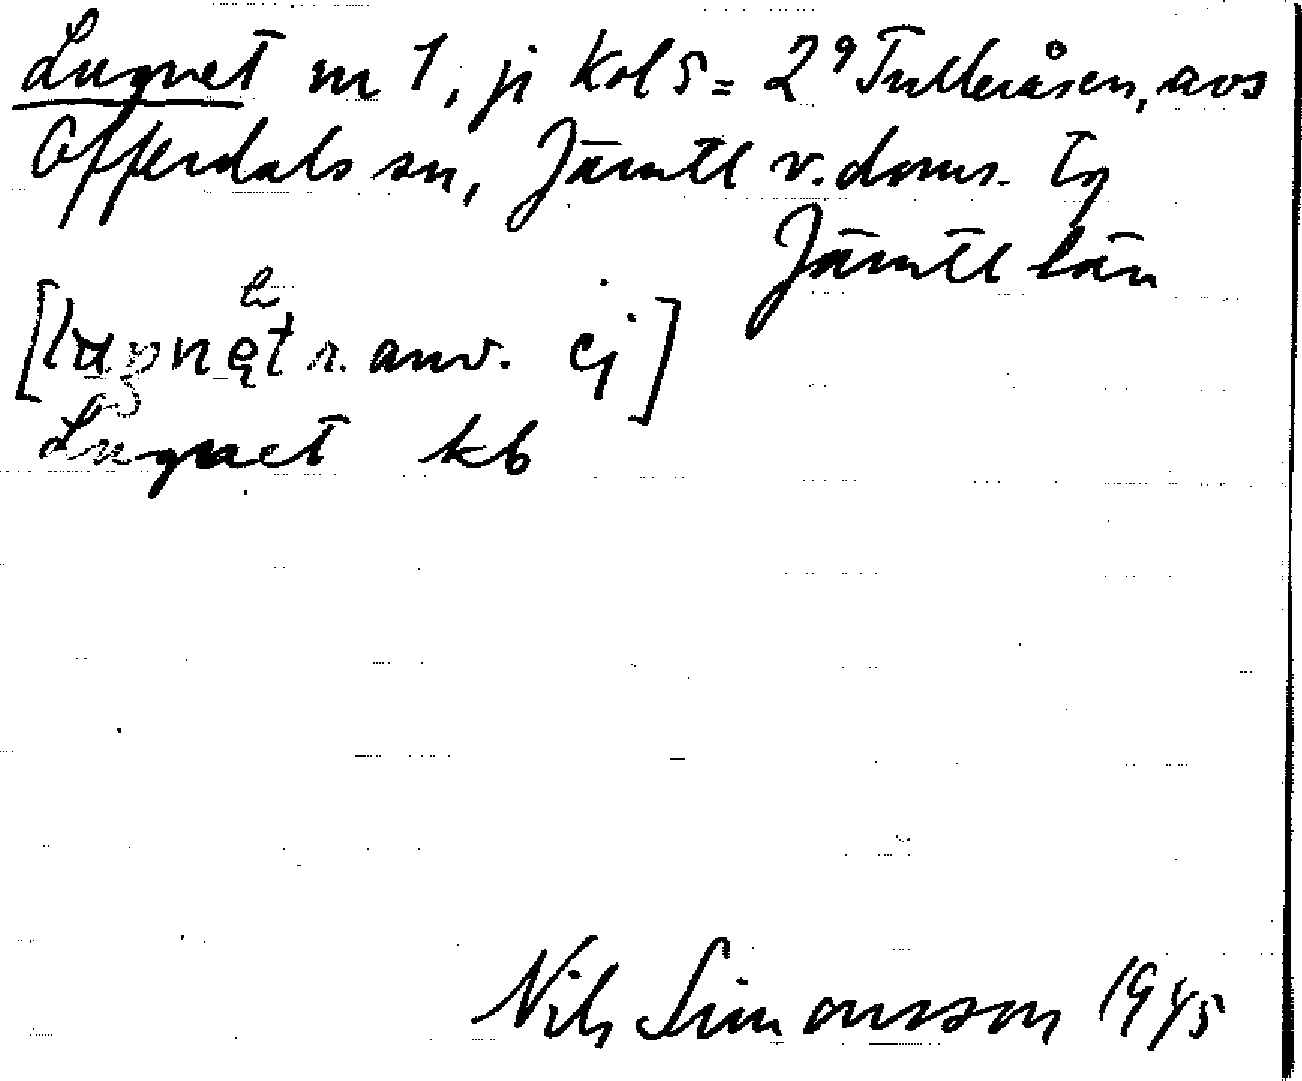 Lugnet nr 1, ji Kol 5 = 2⁹ Tulleråsen, avs
Offerdals sn, Jämtl v. doms. tg
Jämtl län
e
[lugnęt r. anv. ej]
Lugnet kb
Nils Simonsson 1945